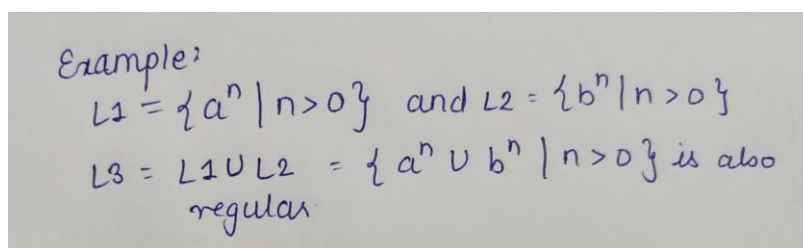 Example:
L1 = {aⁿ | n>0} and L2 = {bⁿ | n>0}
L3 = L1 U L2 = {aⁿ U bⁿ | n>0} is also
regular